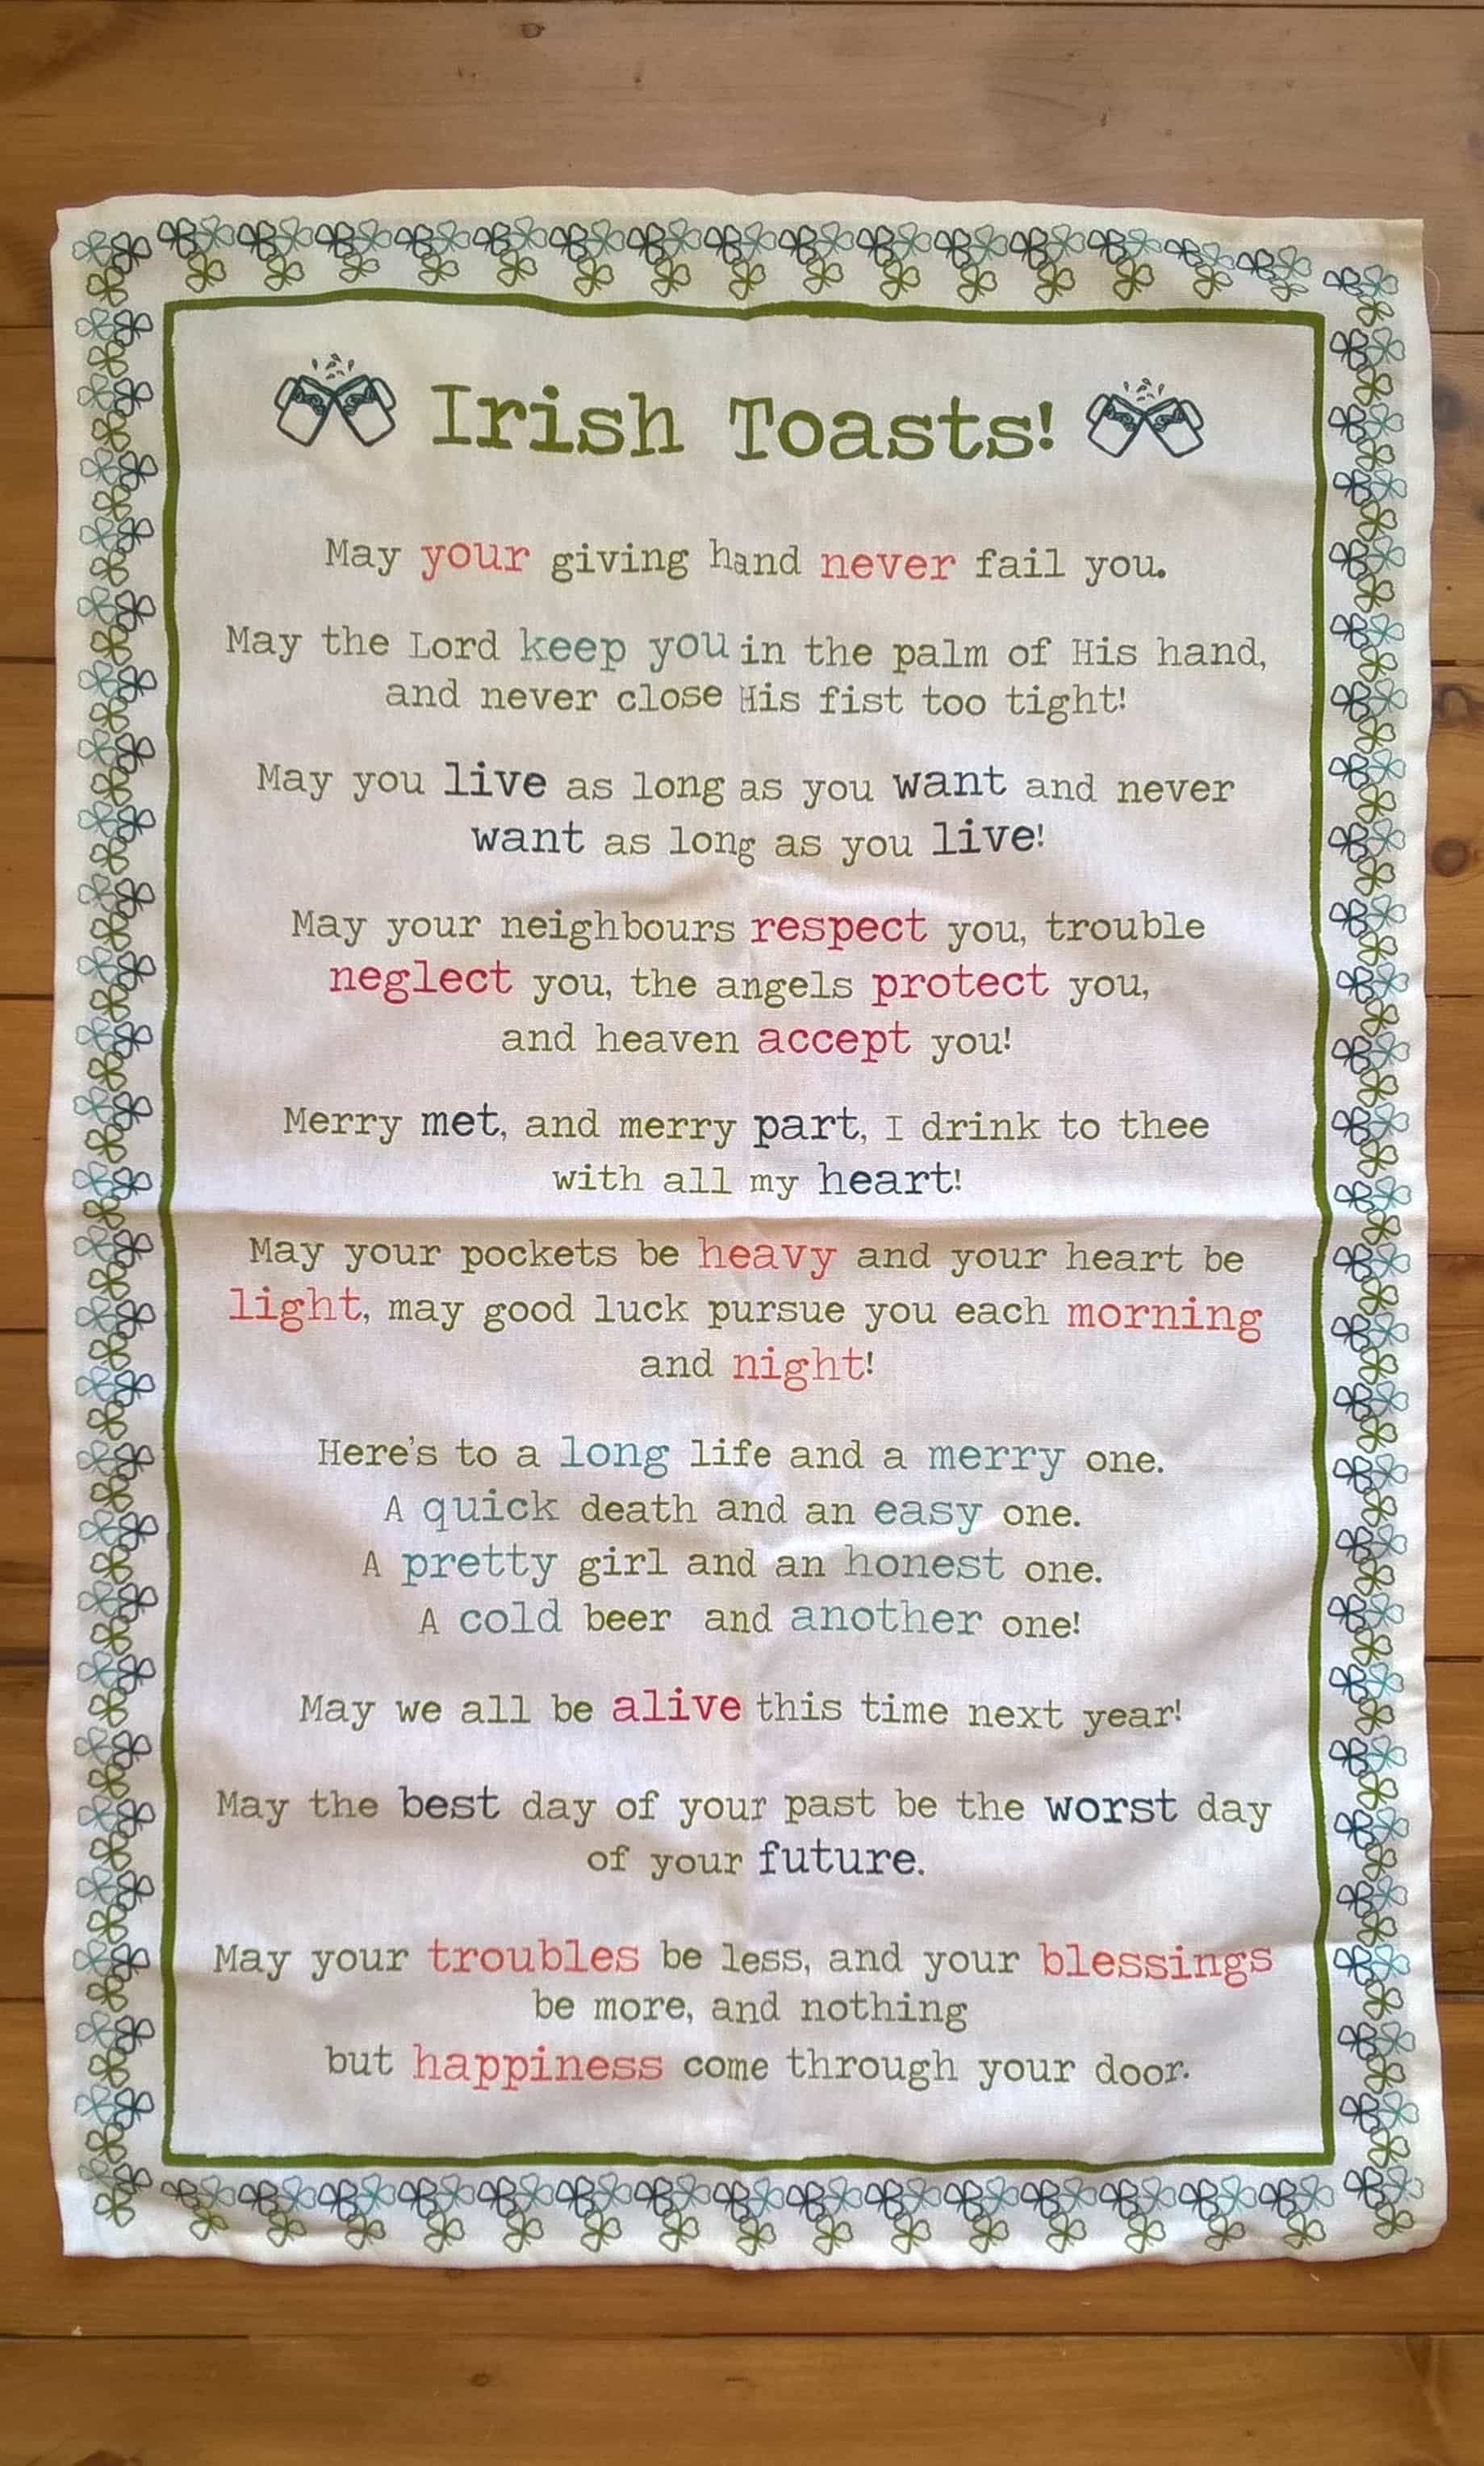 Irish Toasts!
May your giving hand never fail you.
May the Lord keep you in the palm of His hand,
and never close His fist too tight!
May you live as long as you want and never
want as long as you live!
May your neighbours respect you, trouble
neglect you, the angels protect you,
and heaven accept you!
Merry met, and merry part, I drink to thee
with all my heart!
May your pockets be heavy and your heart be
light, may good luck pursue you each morning
and night!
Here's to a long life and a merry one.
A quick death and an easy one.
A pretty girl and an honest one.
A cold beer and another one!
May we all be alive this time next year!
May the best day of your past be the worst day
of your future.
May your troubles be less, and your blessings
be more, and nothing
but happiness come through your door.